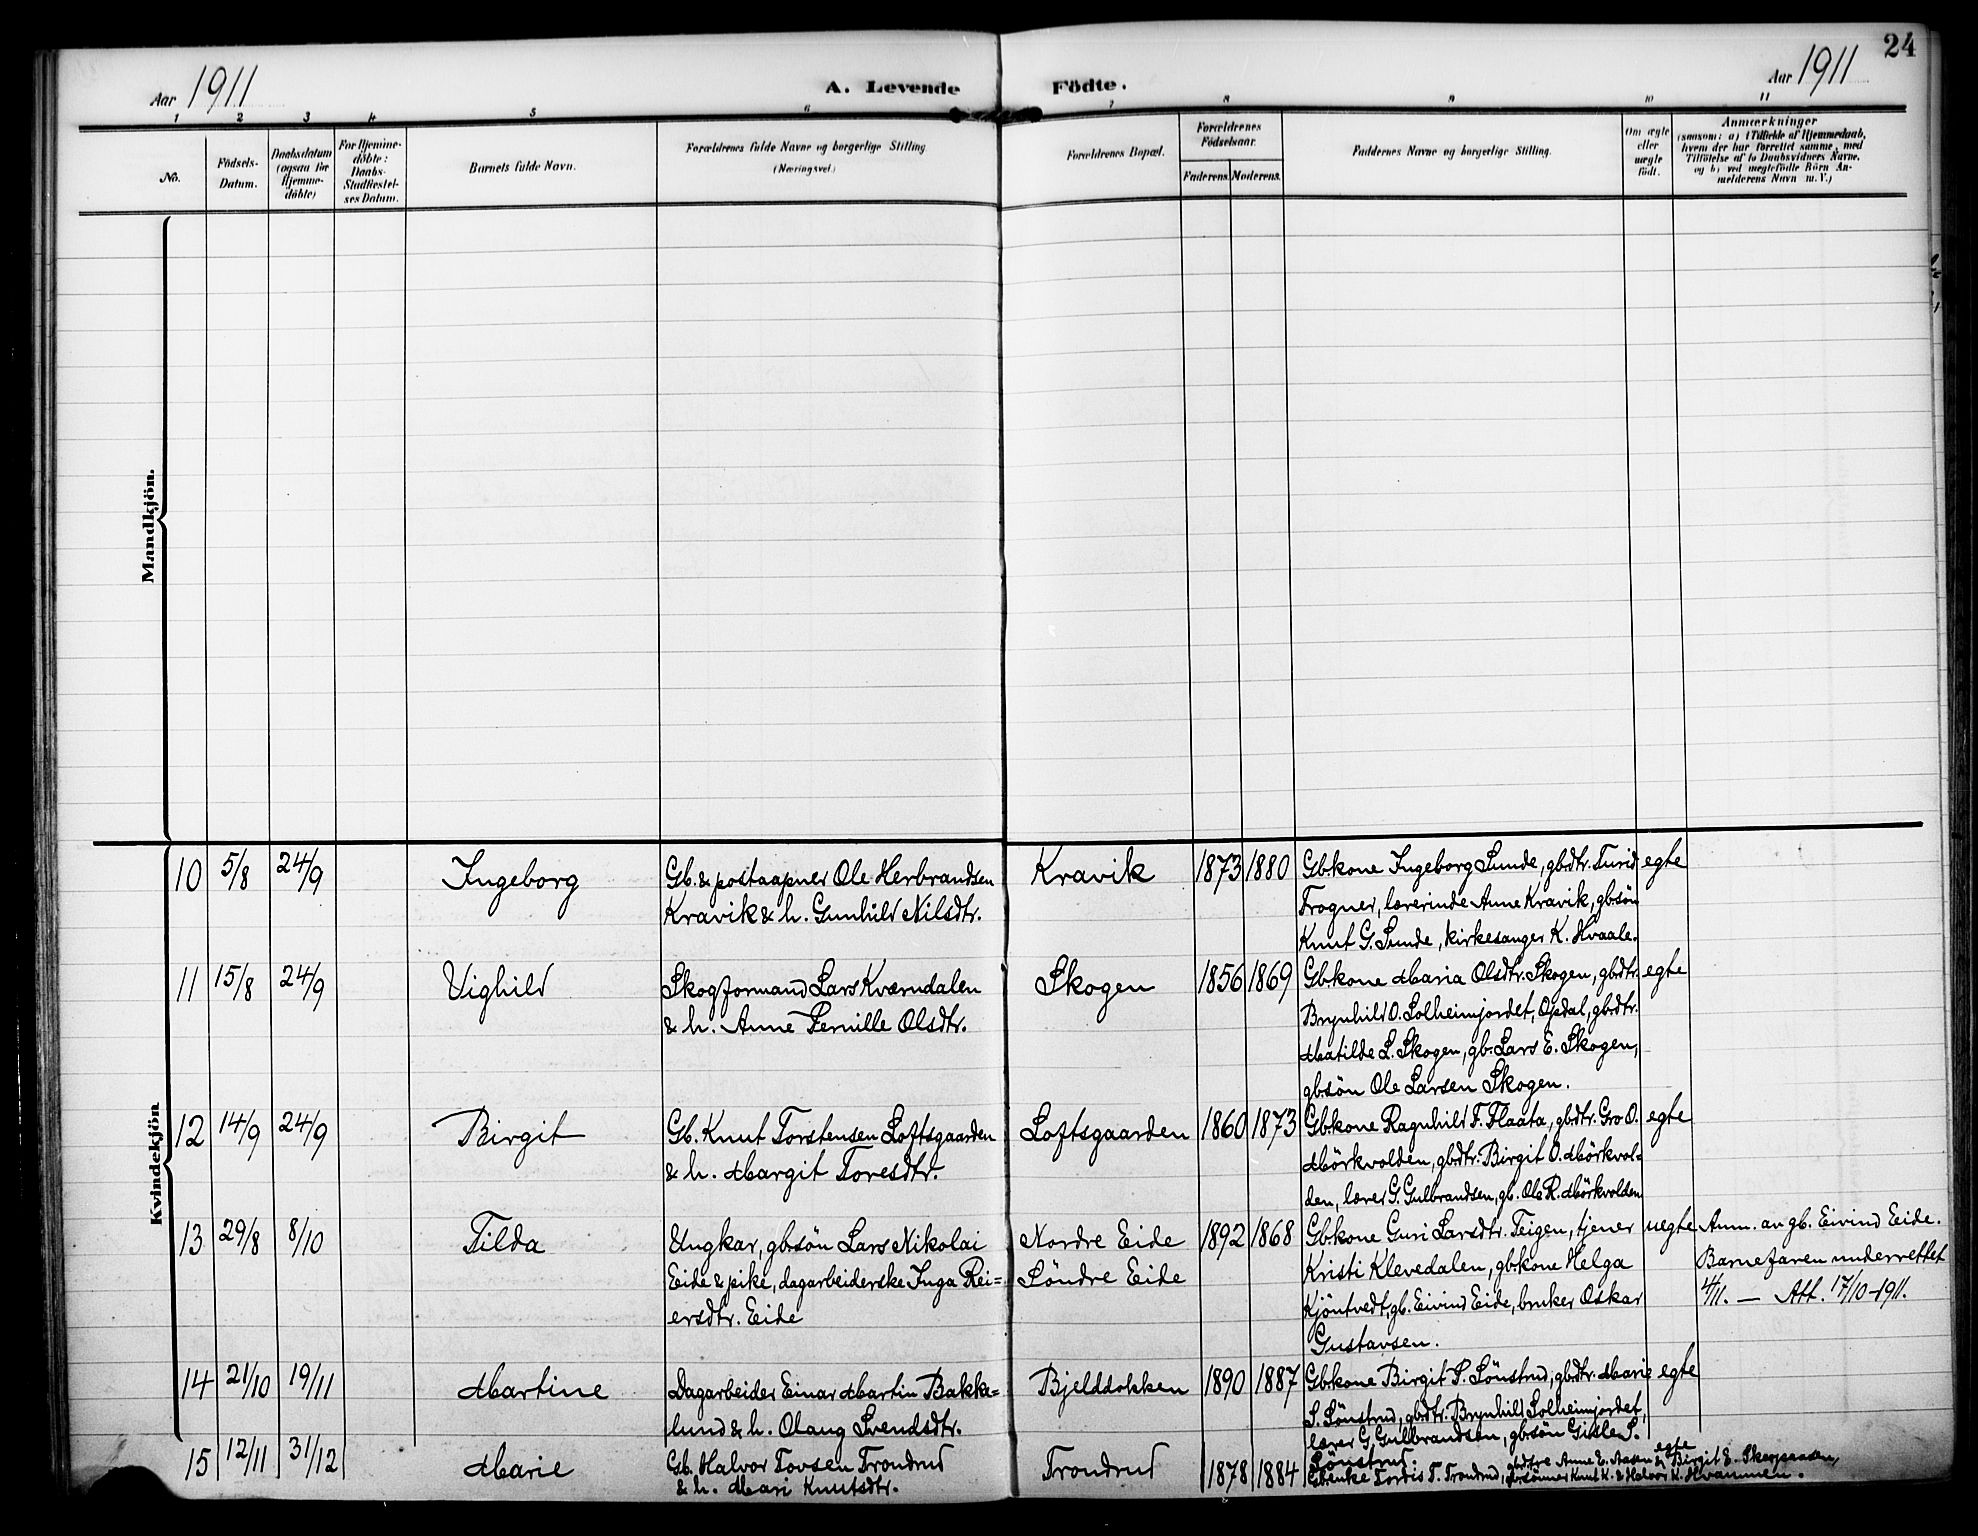 24
Aar 1911
A. Levende Födte.
Aar 1911
1 2 3 4 5 6 7 8 9 10 11
No.
Födsels-
Datum.
Daabsdatum
(ogsaa for
Hjemme-
döbte)
For Hjemme-
döbte:
Daabs-
Stadfæstel-
ses Datum.
Barnets fulde Navn.
Forældrenes fulde Navne og borgerlige Stilling
(Næringsvei.)
Forældrenes Bopæl.
Forældrenes
Födselsaar.
Faderens. Moderens.
Faddernes Navne og borgerlige Stilling.
Om ægte
eller
uægte
födt.
Anmærkninger
(saasom: a) i Tilfælde af Hjemmedaab,
hvem der har forrettet samme, med
Tilföielse af to Daabsvidners Navne,
og b) ved uægtefödte Börn An-
melderens Navn m. V.)
Mandkjön.
Kvindekjön
10 5/8 24/9 Ingeborg Gb. & postaapner Ole Herbrandsen Kravik 1873 1880 Gbkone Ingeborg Sunde, gbdtr. Turid egte
Kravik & h. Gunhild Nilsdtr. Frogner, lærerinde Anne Kravik, gbsön
Knut G. Sunde, kirkesanger K. Hvaale.
11 15/8 24/9 Vighild Skogformand Lars Kværndalen Skogen 1856 1869 Gbkone Maria Olsdtr. Skogen, gbdtr. egte
& h. Anne Pernille Olsdtr. Brynhild O. Solheimjordet, Opdal, gbdtr.
Matilde L. Skogen, gb. Lars E. Skogen,
gbsön Ole Larsen Skogen.
12 14/9 24/9 Birgit Gb. Knut Torstensen Loftsgaarden Loftsgaarden 1860 1873 Gbkone Ragnhild F. Flaata, gbdtr. Gro O. egte
& h. Margit Toresdtr. Mörkvolden, gbdtr. Birgit O. Mörkvol-
den, lærer G. Gulbrandsen, gb. Ole R. Mörkvolden
13 29/8 8/10 Tilda Ungkar, gbsön Lars Nikolai Nordre Eide 1892 1868 Gbkone Guri Larsdtr. Teigen, tjener uegte Anm. av gb. Eivind Eide.
Eide & pike, dagarbeiderske Inga Rei- Söndre Eide Kristi Klevedalen, gbkone Helga Barnefaren underrettet
ersdtr. Eide Kjöntvedt, gb. Eivind Eide, bruker Oskar 4/11. — Att. 17/10-1911.
Gustavsen.
14 21/10 19/11 Martine Dagarbeider Einar Martin Bakke- Bjelddokken 1890 1887 Gbkone Birgit P. Sönstrud, gbdtr. Marie egte
lund & h. Olaug Svendsdtr. S. Sönstrud, gbdtr. Brynhild Solheimjordet,
lærer G. Gulbrandsen, gbsön Gisle S.
Sönstrud.
15 12/11 31/12 Marie Gb. Halvor Tovsen Trondrud Trondrud 1878 1884 Gbenke Tordis T. Trondrud, gbdtre Anne E. Aasen & Birgit E. Skarpaasen, egte
& h. Mari Knutsdtr. gbsönner Knut K. & Halvor K. Hvammen.